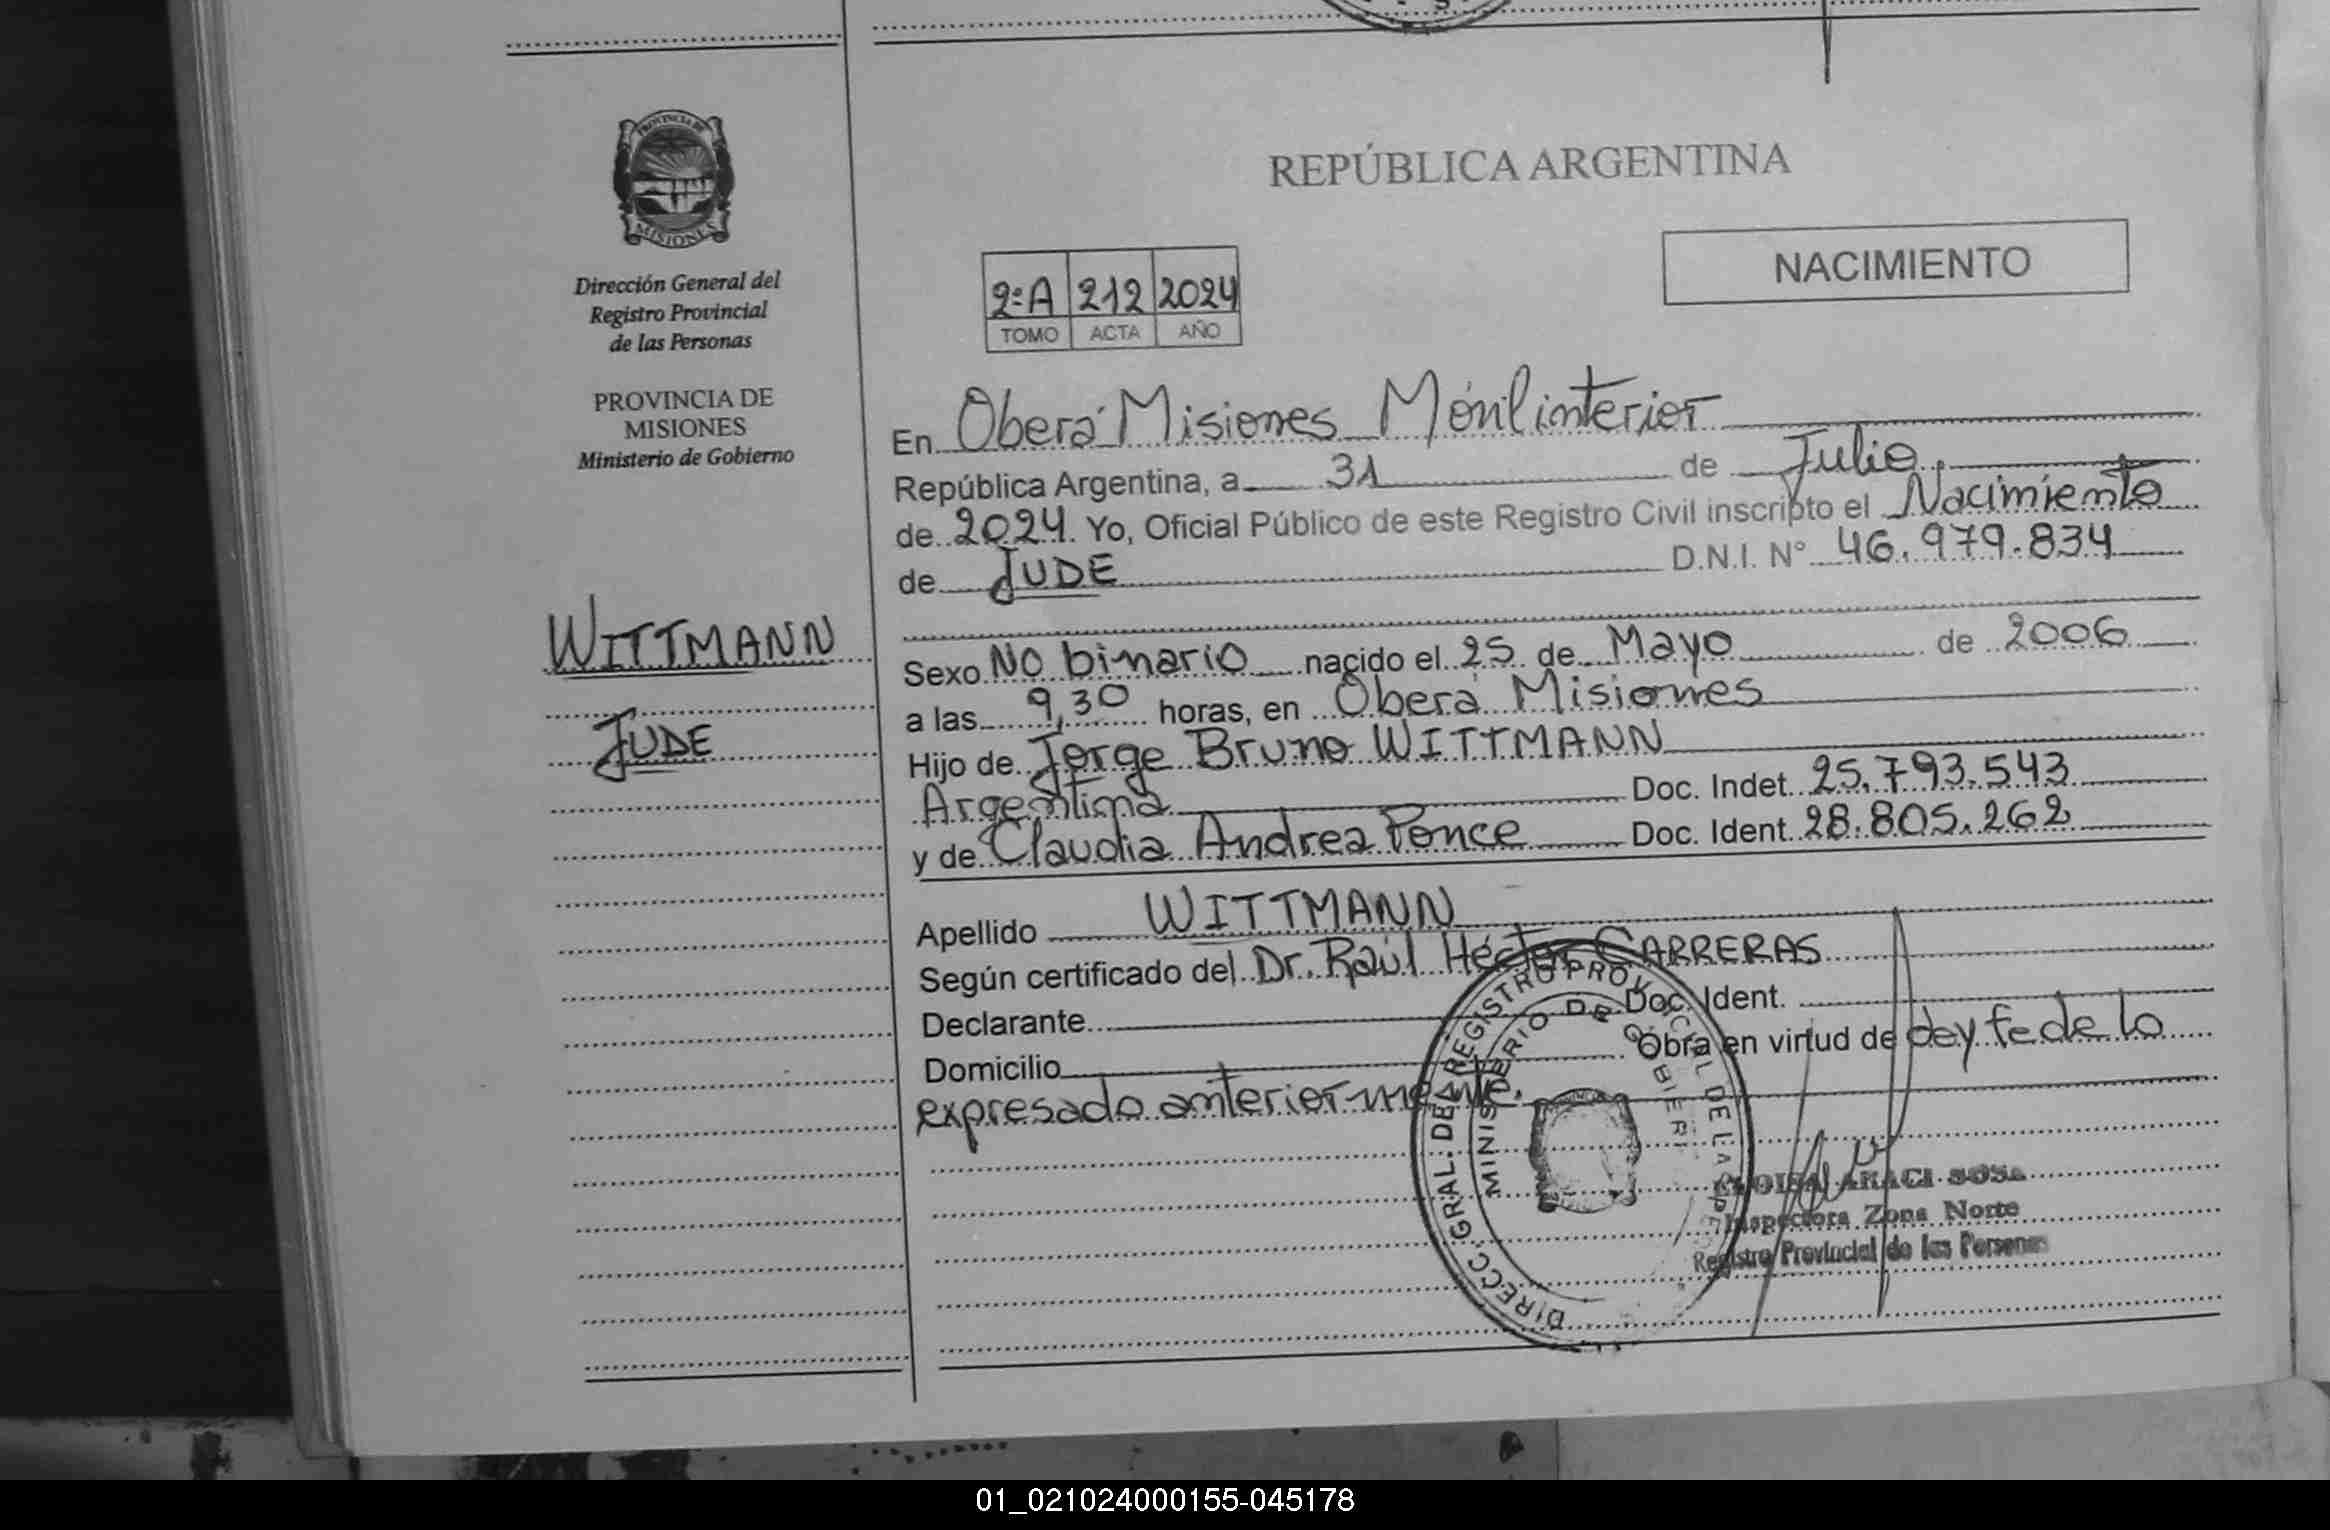 PROVINCIA DE
MISIONES
Dirección General del
Registro Provincial
de las Personas
PROVINCIA DE
MISIONES
Ministerio de Gobierno
WITTMANN
JUDE
REPÚBLICA ARGENTINA
NACIMIENTO
2ºA 212 2024
TOMO ACTA AÑO
En Oberá Misiones Móvil interior
República Argentina, a 31 de Julio,
de 2024. Yo, Oficial Público de este Registro Civil inscripto el Nacimiento
de JUDE D.N.I. Nº 46.979.834
Sexo No binario nacido el 25 de Mayo de 2006
a las 9,30 horas, en Oberá Misiones
Hijo de Jorge Bruno WITTMANN
Argentina Doc. Indet. 25.793.543
y de Claudia Andrea Ponce Doc. Ident. 28.805.262
Apellido WITTMANN
Según certificado del Dr. Raúl Héctor CARRERAS
Declarante Doc. Ident.
Domicilio Obra en virtud de doy fe de lo
expresado anteriormente.
DIRECC. GRAL. DEL REGISTRO PROVINCIAL DE LAS PE
MINISTERIO DE GOBIER
ARACI SOSA
Inspectora Zona Norte
Registro Provincial de las Personas
01_021024000155-045178